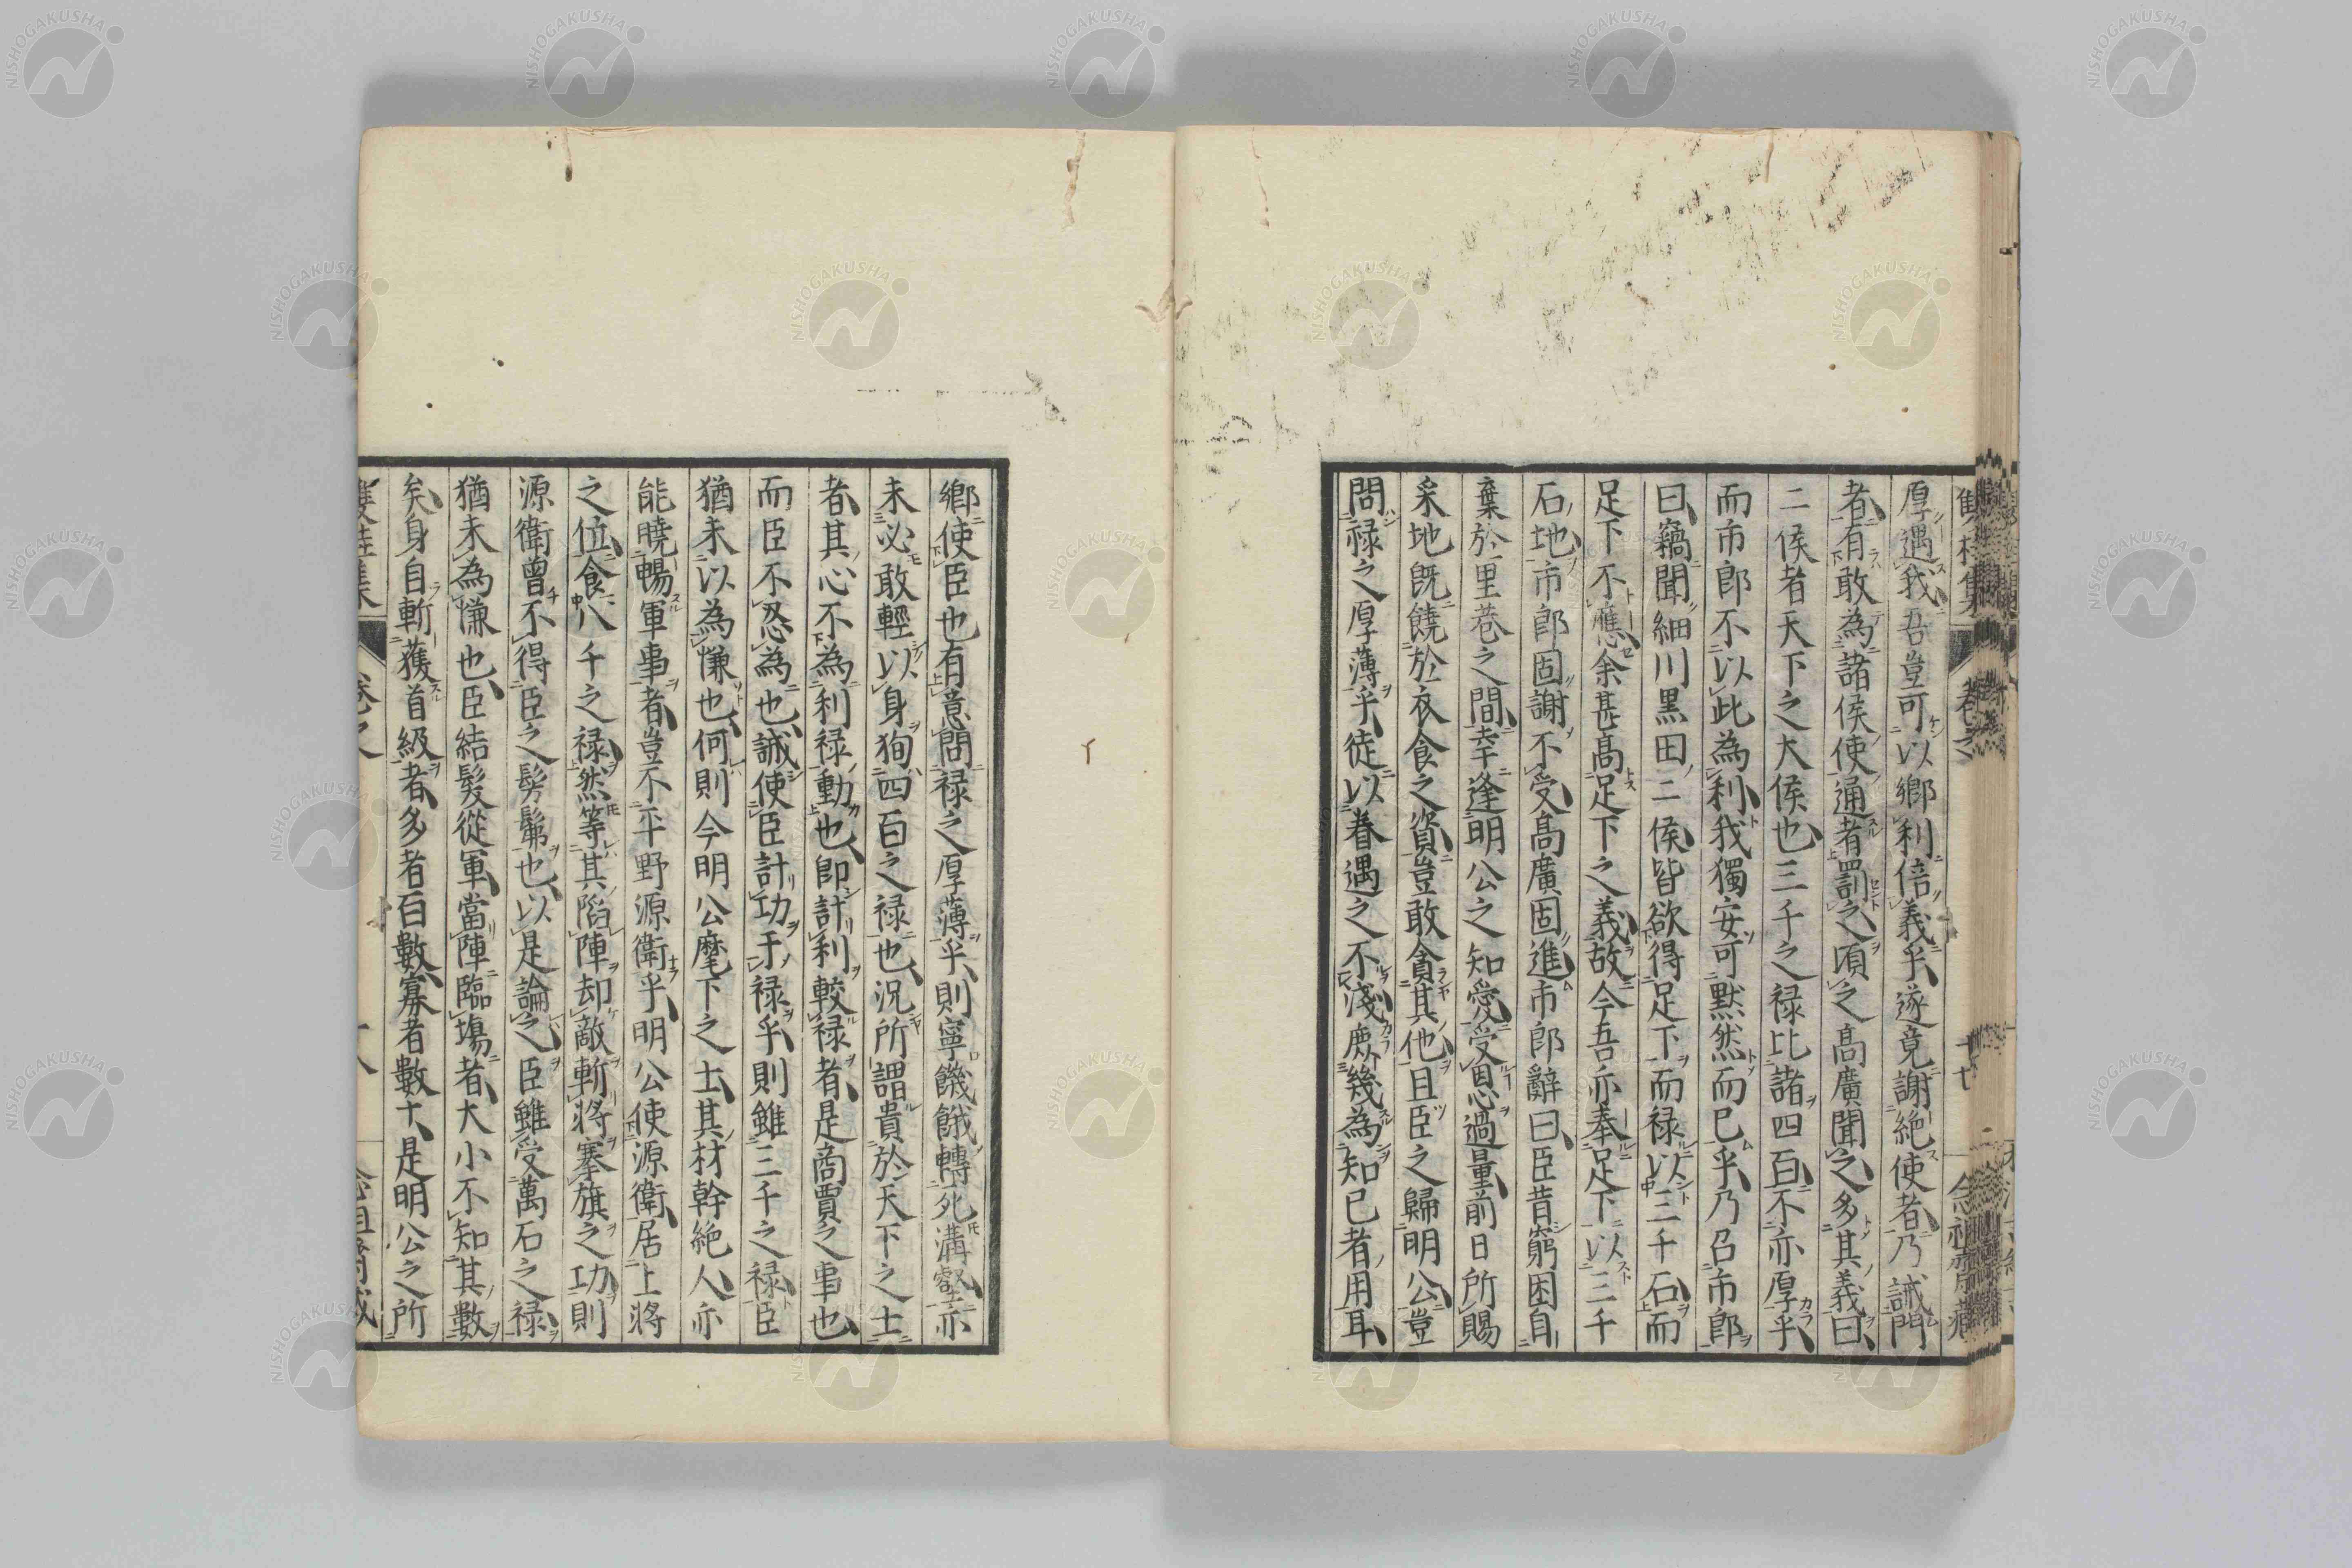 厚遇我吾豈可以鄉利倍義乎遂竟謝絶使者乃誡門
者有敢為諸侯使通者罰之頃之高廣聞之多其義曰
二侯者天下之大侯也三千之禄比諸四百不亦厚乎
而市郎不以此為利我獨安可默然而已乎乃召市郎
曰竊聞細川黒田二侯皆欲得足下而禄以三千石而
足下不應余甚高足下之義故今吾亦奉足下以三千
石地市郎固謝不受高廣固進市郎辭曰臣昔窮困自
棄於里巷之間幸逢明公之知愛受恩過量前日所賜
采地既饒於衣食之資豈敢貪其他且臣之歸明公豈
問禄之厚薄乎徒以眷遇之不淺庶幾為知己者用耳
鄉使臣也有意問禄之厚薄乎則寧饑餓轉死溝壑亦
未必敢輕以身狥四百之禄也況所謂貴於天下之士
者其心不為利禄動也即計利較禄者是商賈之事也
而臣不忍為也誠使臣計功于禄乎則雖三千之禄臣
猶未以為慊也何則今明公麾下之士其材幹絶人亦
能曉暢軍事者豈不平野源衛乎明公使源衛居上將
之位食八千之禄然等其陷陣却敵斬將搴旗之功則
源衛曾不得臣之髣髴也以是論之臣雖受萬石之禄
猶未為慊也臣結髮從軍當陣臨場者大小不知其數
矣身自斬獲首級者多者百數寡者數十是明公之所
卷之
NISHOGAKUSHA